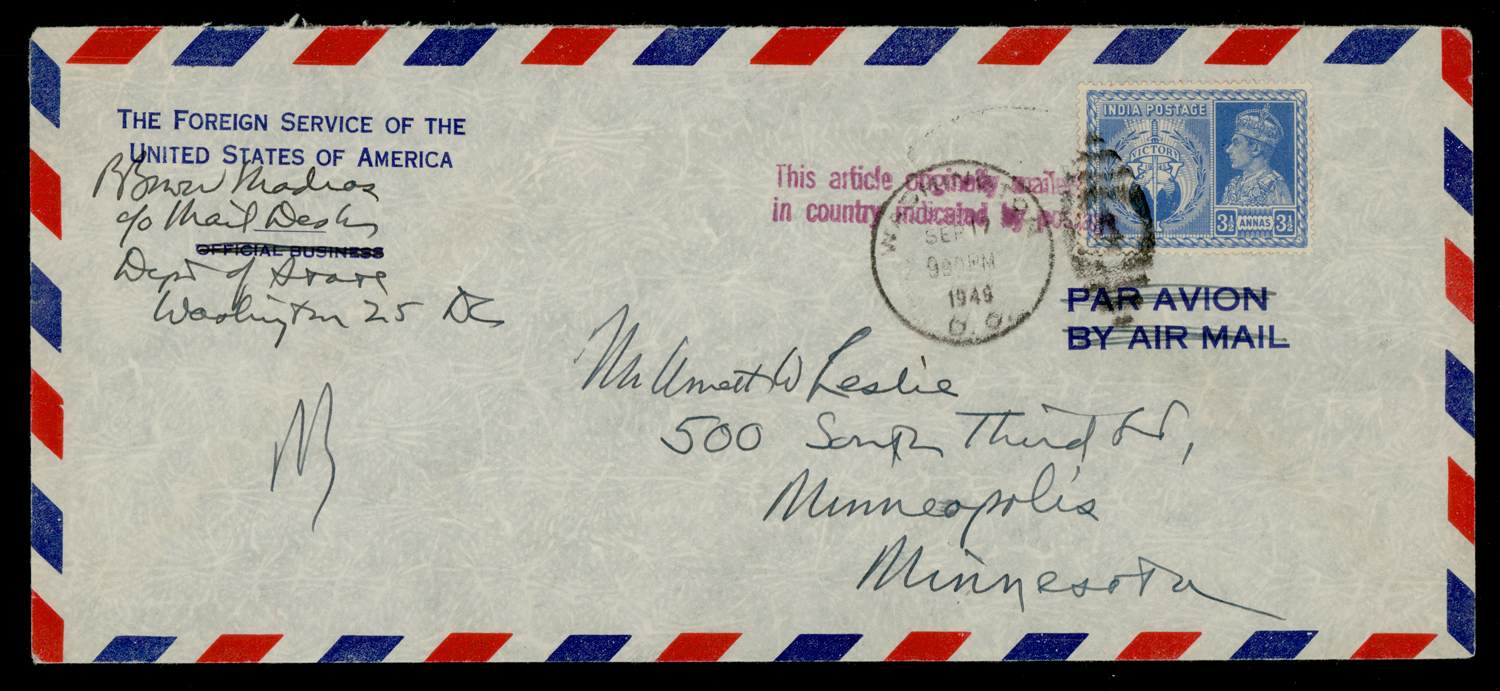 THE FOREIGN SERVICE OF THE
UNITED STATES OF AMERICA
Madras
c/o Mail Desk
OFFICIAL BUSINESS
Dept of State
Washington 25 DC
This article originally maile
in country indicated by posta
INDIA POSTAGE
VICTORY
3½ ANNAS 3½
SEP 17
PM
1949
D. C.
PAR AVION
BY AIR MAIL
Mr W Leslie
500 South Third St,
Minneapolis
Minnesota